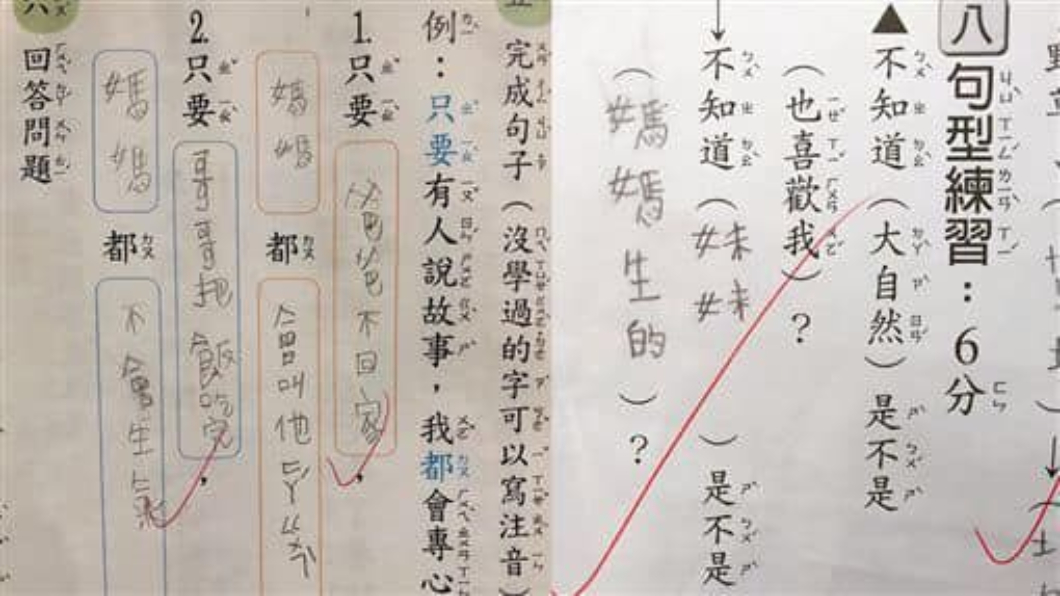 完成句子（沒學過的字可以寫注音）
例：只要有人說故事，我都會專心
1.只要爸爸不回家，
媽媽都會叫他ㄉㄚˇㄍㄨㄣˇ
2.只要哥哥把飯吃完，
媽媽都不會生氣
六
回答問題
八 句型練習：6分
▲不知道（大自然）是不是
（也喜歡我）？
不知道（妹妹）是不是
（媽媽生的）？